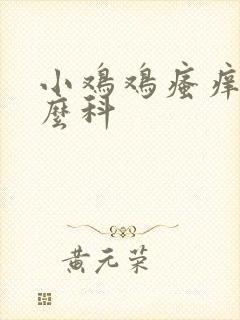 小鸡鸡瘙痒
麽科
黄元荣